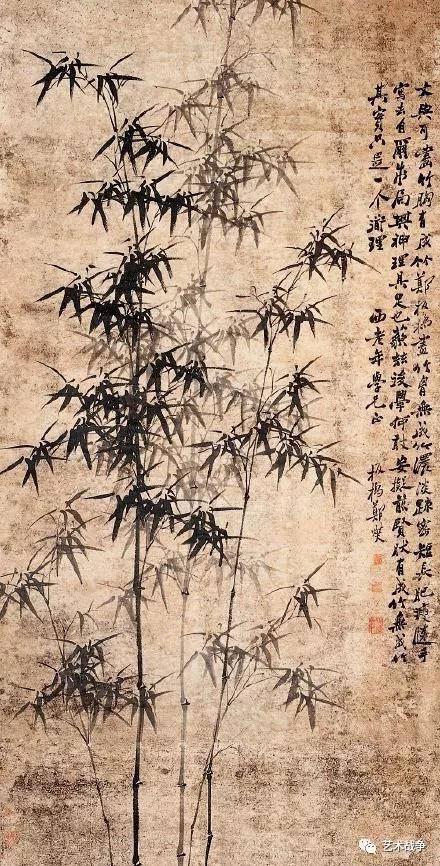 文與可畫竹胸有成竹鄭板橋畫竹胸無成竹濃淡疎密短長肥瘦隨手
寫去自爾成局其神理具足也藐茲後學何敢妄擬前賢然有成竹無成竹
其實只是一个道理
西老年學兄正
板橋鄭燮
艺术战争